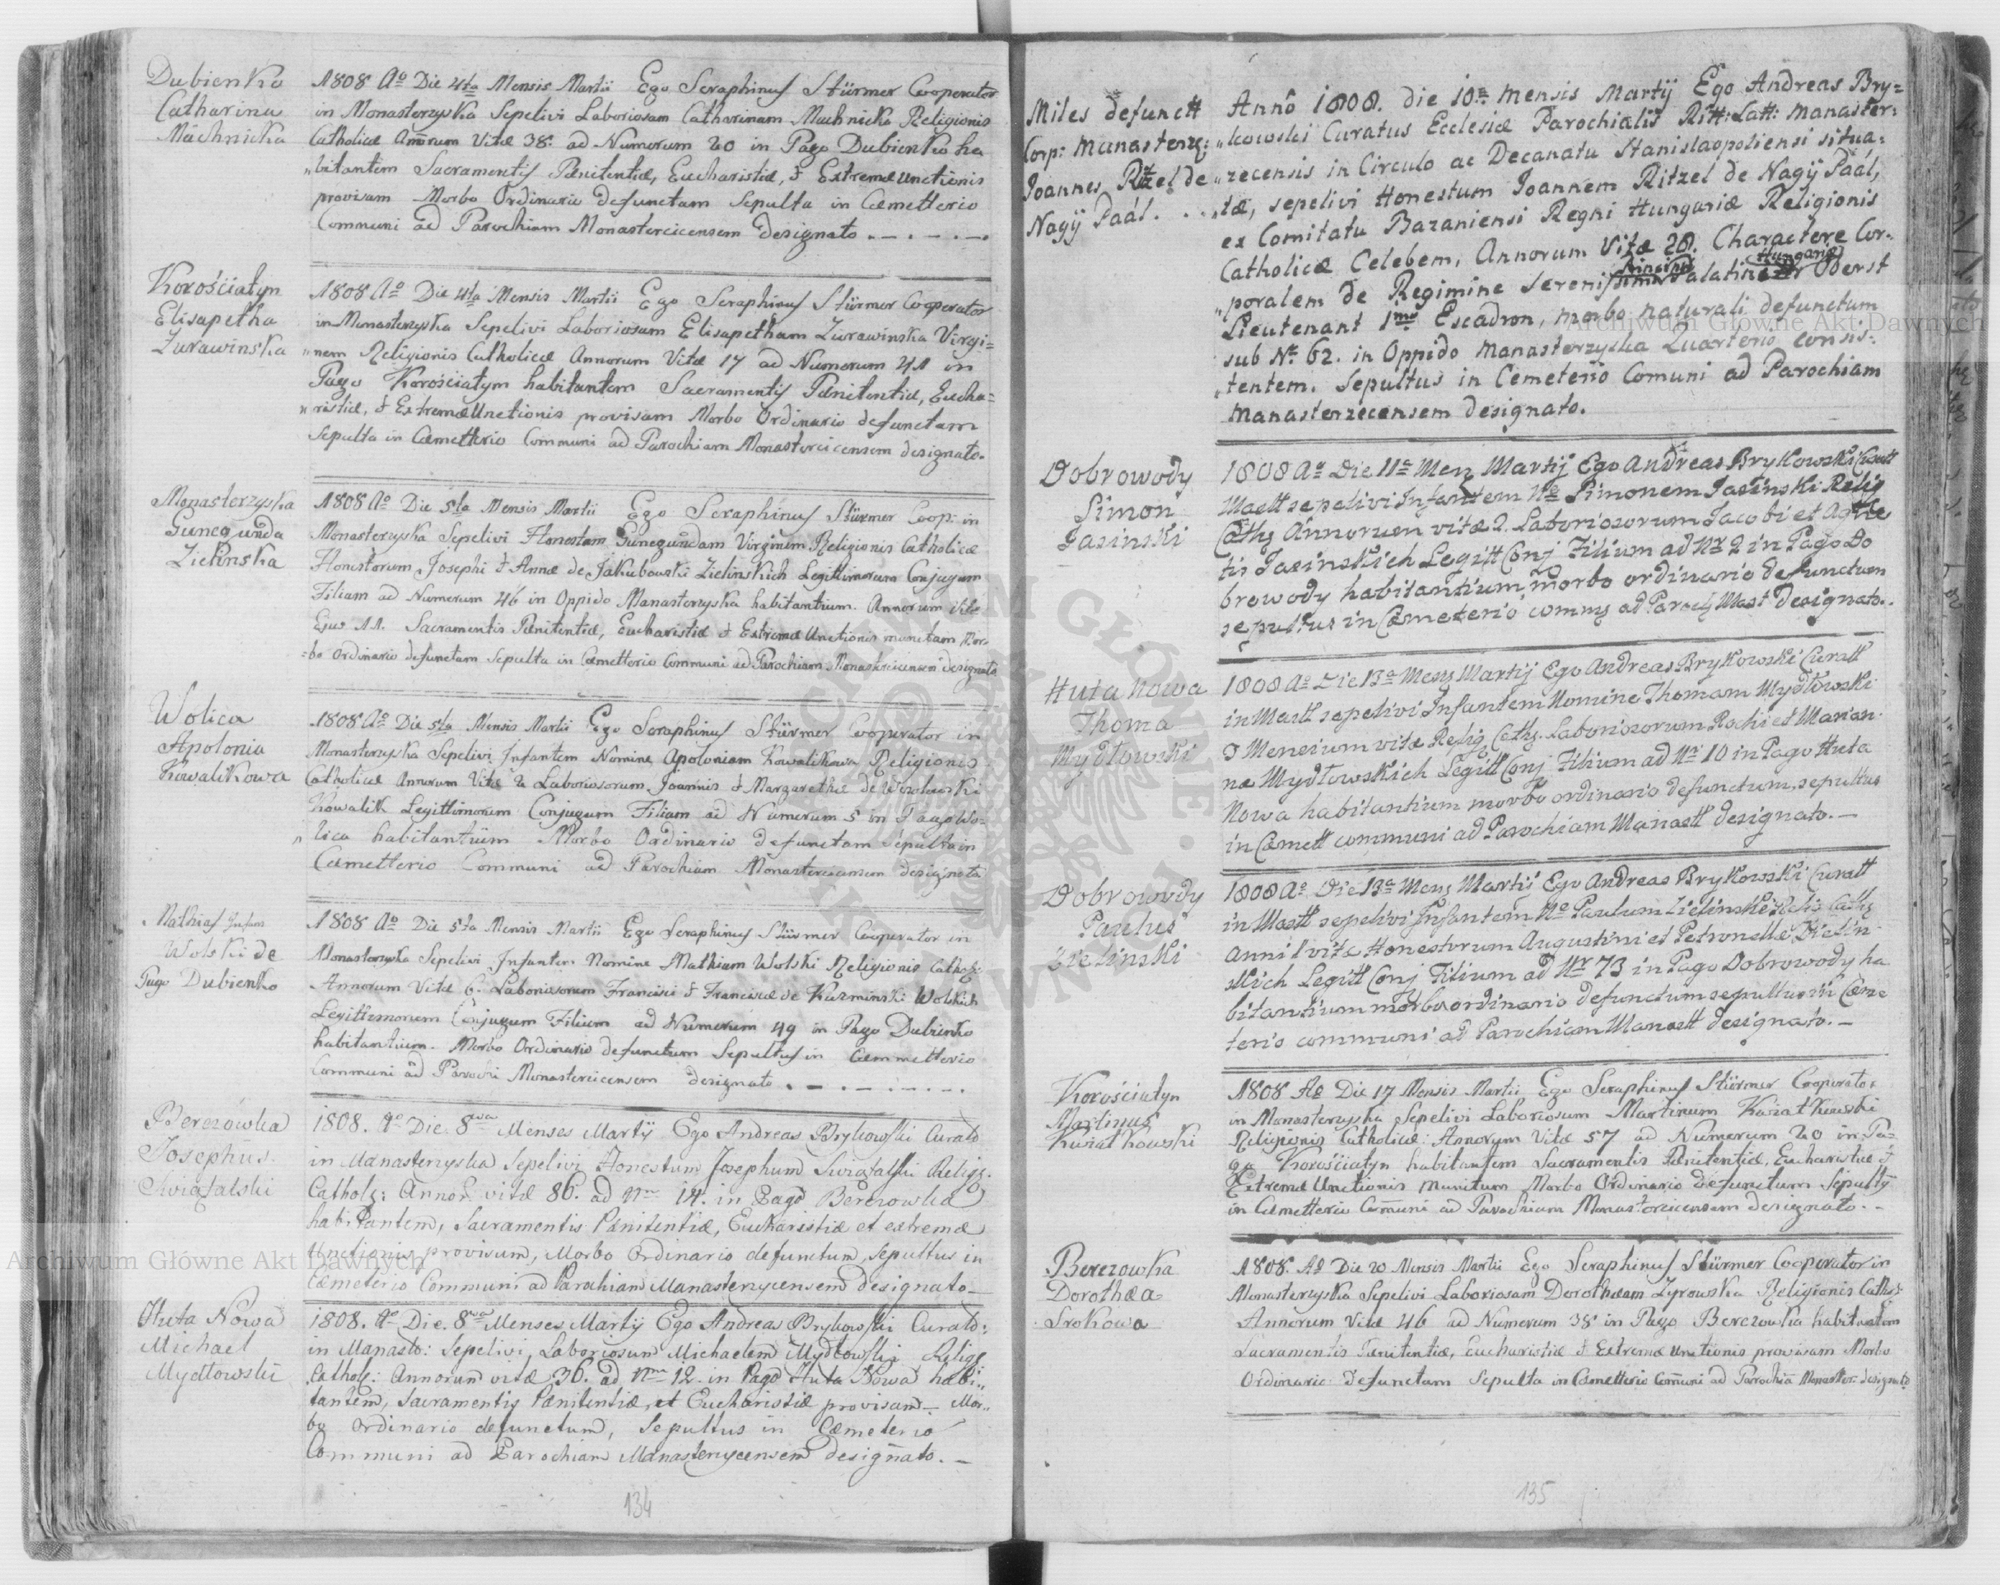 Dubienko
Catharina
Machnicka
1808 Ao Die 4ta Mensis Martii Ego Seraphinus Stürmer Cooperator
in Monasterzyska Sepelivi Laboriosam Catharinam Machnicka Religionis
Catholicæ Annorum Vitæ 38. ad Numerum 20 in Pago Dubienko ha
"bitantem Sacramentis Pænitentiæ, Eucharistiæ, & Extremæ Unctionis
provisam Morbo Ordinario defunctam Sepulta in Cæmetterio
Communi ad Parochiam Monastercicensem designato.
Korościatyn
Elisapetha
Zurawinska
1808 Ao Die 4ta Mensis Martii Ego Seraphinus Stürmer Cooperator
in Monasterzyska Sepelivi Laboriosam Elisapetham Zurawinska Virgi=
"nem Religionis Catholicæ Annorum Vitæ 17 ad Numerum 41 in
Pago Korościatyn habitantem Sacramentis Pænitentiæ, Eucha=
"ristiæ, & Extremæ Unctionis provisam Morbo Ordinario defunctam
Sepulta in Cæmetterio Communi ad Parochiam Monastercicensem designato.
Monasterzyska
Gunegunda
Zielinska
1808 Ao Die 5ta Mensis Martii Ego Seraphinus Stürmer Coop: in
Monasterzyska Sepelivi Honestam Gunegundam Virginem Religionis Catholicæ
Honestorum Josephi & Annæ de Jakubowski Zielinskich Legittimorum Conjugum
Filiam ad Numerum 46 in Oppido Monasterzyska habitantium. Annorum Vitæ
Suæ 11. Sacramentis Pænitentiæ, Eucharistiæ & Extremæ Unctionis munitam Mor-
=bo Ordinario defunctam Sepulta in Cæmetterio Communi ad Parochiam Monastercicensem designato
Wolica
Apolonia
Kowalikowa
1808 Ao Die 5ta Mensis Martii Ego Seraphinus Stürmer Cooperator in
Monasterzyska Sepelivi Infantem Nomine Apoloniam Kowalikowa Religionis
Catholicæ Annorum Vitæ 2 Laboriosorum Joannis & Margarethæ de
Kowalik Legittimorum Conjugum Filiam ad Numerum 5 in Pago Wo-
"lica habitantium Morbo Ordinario defunctam Sepulta in
Cæmetterio Communi ad Parochiam Monastercicensem designato
Mathias Infans
Wolski de
Pago Dubienko
1808 Ao Die 5ta Mensis Martii Ego Seraphinus Stürmer Cooperator in
Monasterzyska Sepelivi Infantem Nomine Mathiam Wolski Religionis Cathol:
Annorum Vitæ 6. Laboriosorum Francisci & Franciscæ de Kuzminski Wolskich
Legittimorum Conjugum Filium ad Numerum 49 in Pago Dubienko
habitantium. Morbo Ordinario defunctum Sepultus in Cæmmetterio
Communi ad Parochi Monastercicensem designato.
Berezówka
Josephus
Swiątalski
1808. Ao Die 8va Menses Martÿ Ego Andreas Brykowski Curato
in Manasterzyska Sepelivi Honestum Josephum Swiątalski Relig:
Cathol: Annor: vitæ 86. ad Nrm 14. in Pago Berezowka
habitantem, Sacramentis Pænitentiæ, Eucharistiæ et extremæ
Unctionis provisum, Morbo Ordinario defunctum, sepultus in
Cæmeterio Communi ad Parochiam Manasterzycensem designato
Huta Nowa
Michael
Mydłowski
1808. Ao Die 8va Menses Martÿ Ego Andreas Brykowski Curato:
in Manast: Sepelivi, Laboriosum Michaelem Mydłowski Relig:
Cathol: Annorum vitæ 36. ad Nrm 12. in Pago Huta Nowa habi:
tantem, Sacramentis Pænitentiæ, et Eucharistiæ provisum Mor-
bo Ordinario defunctum, Sepultus in Cæmeterio
Communi ad Parochiam Manasterzycensem designato.
134
Miles defunctt
Corp: Manasterz:
Joannes Ritzel de
Nagÿ Paál.
Annô 1808. die 10ma Mensis Martÿ Ego Andreas Bry=
"kowski Curatus Ecclesiæ Parochialis Ritt: Latt: Manaster:
"zecensis in Circulo ac Decanatu Stanislaopoliensi situa:
"tæ, sepelivi Honestum Joannem Ritzel de Nagÿ Paál,
ex Comitatu Bazaniensi Regni Hungariæ Religionis
Catholicæ Celebem, Annorum Vitæ 28. Charactere Cor-
"poralem de Regimine Serenissimi Principis Palatini Hungariæ Oberst
Lieutenant 1mo Escadron, morbo naturali defunctum
sub No. 62. in Oppido Manasterzyska Quarterio consis:
"tentem. Sepultus in Cemeterio Comuni ad Parochiam
Manasterzecensem designato.
Dobrowody
Simon
Jasinski
1808 Ao Die 11a Men Martij Ego Andreas Brykowski Curatt
Mastt sepelivi Infantem Ne Simonem Jasinski Relig
Cath Annorum vitæ 2. Laboriosorum Jacobi et Agne
tis Jasinskich Legitt Conj Filium ad Nr 2 in Pago Do
browody habitantium morbo ordinario defunctum
sepultus in Cæmeterio commu ad Paroch Mast designato.
Huta Nowa
Thoma
Mydłowski
1808 Ao Die 13a Mens Martij Ego Andreas Brykowski Curatt
in Mastt sepelivi Infantem Nomine Thomam Mydłowski
3 Mensium vitæ Relig Cath. Laboriosorum Rochi et Marian
næ Mydłowskich Legitt Conj Filium ad Nr 10 in Pago Huta
Nowa habitantium morbo ordinario defunctum, sepultus
in Cæmett communi ad Parochiam Manastt designato.
Dobrowody
Paulus
Zielinski
1808 Ao Die 13a Mens Martij Ego Andreas Brykowski Curatt
in Mastt sepelivi Infantem Ne Paulum Zielinski Relig Cath
anni 1 vitæ Honestorum Augustini et Petronellæ Zielin
skich Legitt Conj Filium ad Nr 73 in Pago Dobrowody ha
bitantium morbo ordinario defunctum sepultus in Cæme
terio communi ad Parochiam Manastt designato.
Korościatyn
Martinus
Kwiatkowski
1808 Ao Die 17 Mensis Martii Ego Seraphinus Stürmer Cooperator
in Monasterzyska Sepelivi Laboriosum Martinum Kwiatkowski
Religionis Catholicæ: Annorum Vitæ 57 ad Numerum 20 in Pa-
go Korościatyn habitantem Sacramentis Pænitentiæ, Eucharistiæ &
Extremæ Unctionis munitum Morbo Ordinario defunctum Sepult9
in Cæmetterio Comuni ad Parochiam Monastercicensem designato.
Berezowka
Dorothea
Srokowa
1808. Ao Die 20 Mensis Martii Ego Seraphinus Stürmer Cooperator in
Monasterzyska Sepelivi Laboriosam Dorotheam Zyrowska Religionis Cathol:
Annorum Vitæ 46 ad Numerum 38 in Pago Berezowka habitantem
Sacramentis Pænitentiæ, Eucharistiæ & Extremæ Unctionis provisam Morbo
Ordinario defunctam Sepulta in Cæmetterio Comuni ad Parochia Monaster: designato
135
Archiwum Główne Akt Dawnych
Archiwum Główne Akt Dawnych
ARCHIWUM GŁÓWNE AKT DAWNYCH